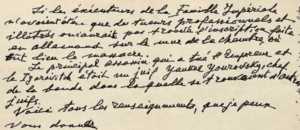 Si les exécuteurs de la Famille Impériale
n'avaient été que de tueurs professionnels et
illettrés on n'aurait pas trouvé l'inscription faite
en allemand sur le mur de la chambre où
eut lieu le massacre.
Le principal assassin qui a tué l'Empereur et
le Tsarévitch était un juif Yankel Yourovsky, chef
de la bande dans laquelle se trouvaient d'autres
juifs.
Voici tous les renseignements, que je peux
vous donner